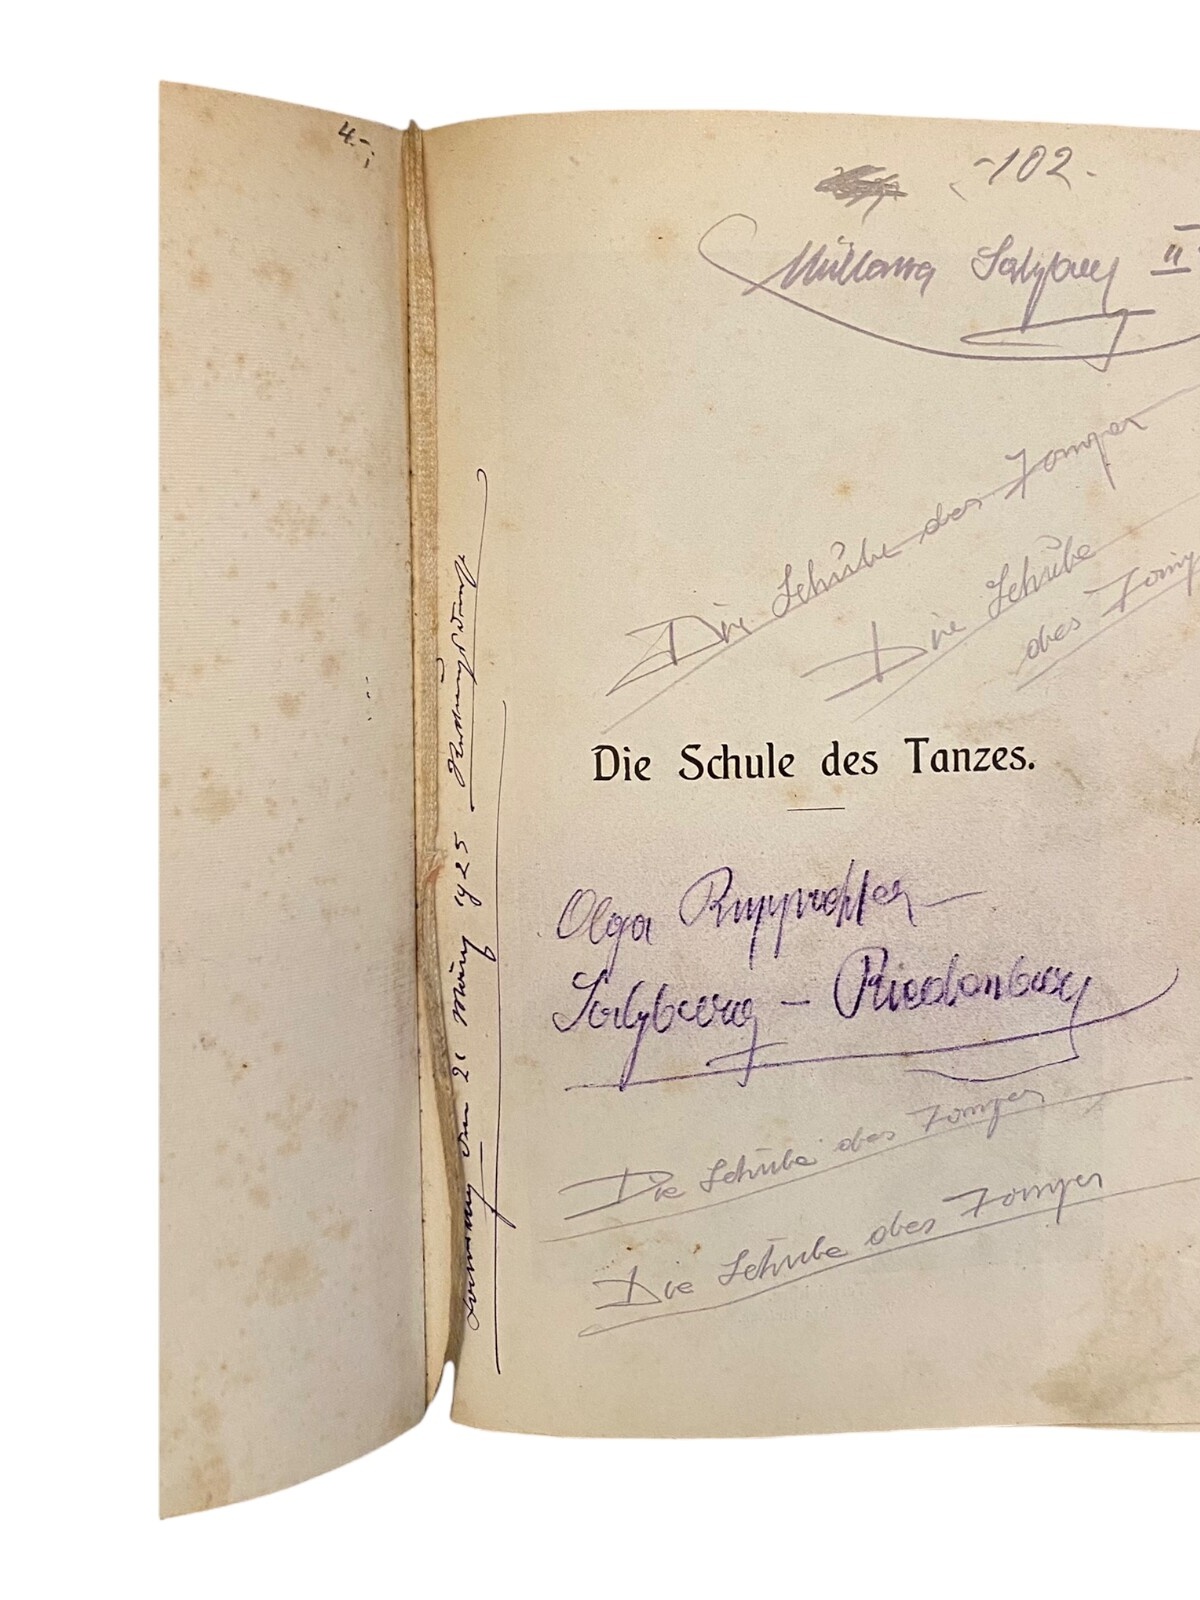 4.-;
-102.
Salzburg II
Die Schule des Tanzes
Die Schule
des
Die Schule des Tanzes.
Olga Rupprechter
Salzburg – Riedenburg
Die Schule des Tanzes
Die Schule des Tanzes
den 21 März 1925